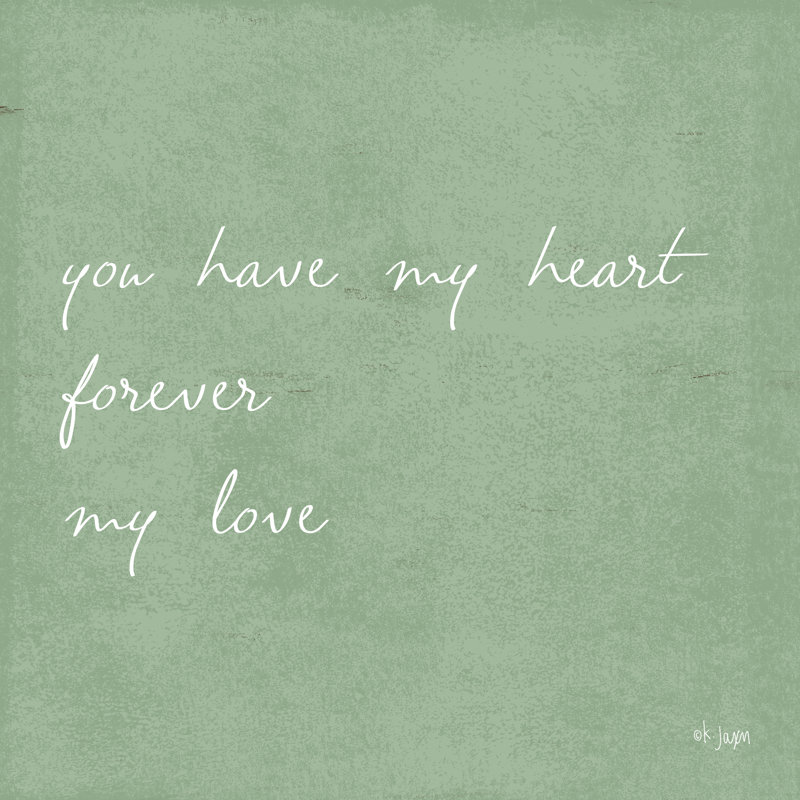 you have my heart
forever
my love
©K. Jaxn